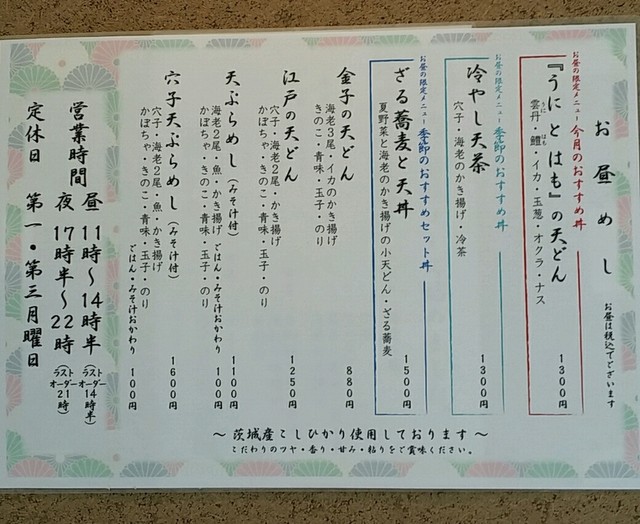 お昼めし
お昼は税込でございます
お昼の限定メニュー 今月のおすすめ丼
『うにとはも』の天どん
雲丹・鱧・イカ・玉葱・オクラ・ナス
うに
はも
1300円
お昼の限定メニュー 季節のおすすめ丼
冷やし天茶
穴子・海老のかき揚げ・冷茶
1300円
お昼の限定メニュー 季節のおすすめセット丼
ざる蕎麦と天丼
夏野菜と海老のかき揚げの小天どん・ざる蕎麦
1500円
金子の天どん
海老3尾・イカのかき揚げ
きのこ・青味・玉子・のり
880円
江戸の天どん
穴子・海老2尾・かき揚げ
かぼちゃ・きのこ・青味・玉子・のり
1250円
天ぷらめし(みそ汁付)
海老2尾・魚・かき揚げ
かぼちゃ・きのこ・青味・玉子・のり
1100円
ごはん・みそ汁おかわり 100円
穴子天ぷらめし(みそ汁付)
穴子・海老2尾・魚・かき揚げ
かぼちゃ・きのこ・青味・玉子・のり
1600円
ごはん・みそ汁おかわり 100円
〜茨城産こしひかり使用しております〜
こだわりのツヤ・香り・甘み・粘りをご賞味ください。
営業時間
昼 11時〜14時半(ラストオーダー14時半)
夜 17時半〜22時(ラストオーダー21時)
定休日 第一・第三月曜日